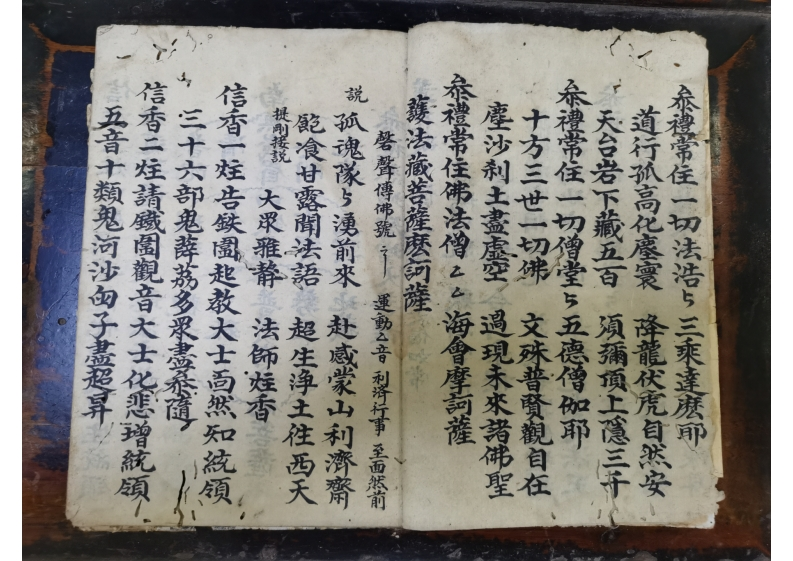 叅禮常住一切法浩〻　三乘達麽耶
道行孤高化塵寰　降龍伏虎自然安
天台岩下藏五百　須彌頂上隱三千
叅禮常住一切僧堂〻　五德僧伽耶
十方三世一切佛　文殊普賢觀自在
塵沙刹土盡虛空　過現未來諸佛聖
叅禮常住佛法僧〻〻　海會摩訶薩
護法藏菩薩麽訶薩
磬聲傳佛號　運動〻音　利済行事　至面然前
說　孤魂隊〻湧前來　赴感蒙山利濟齋
飽飡甘露聞法語　超生浄土徃西天
提剛接説　大眾雅静　法師炷香
信香一炷告鉄圍　起教大士靣然知統領
三十六部鬼薜荔多眾盡叅隨
信香二炷請鐵圍觀音大士化悲增統領
五音十類鬼河沙男子盡超昇